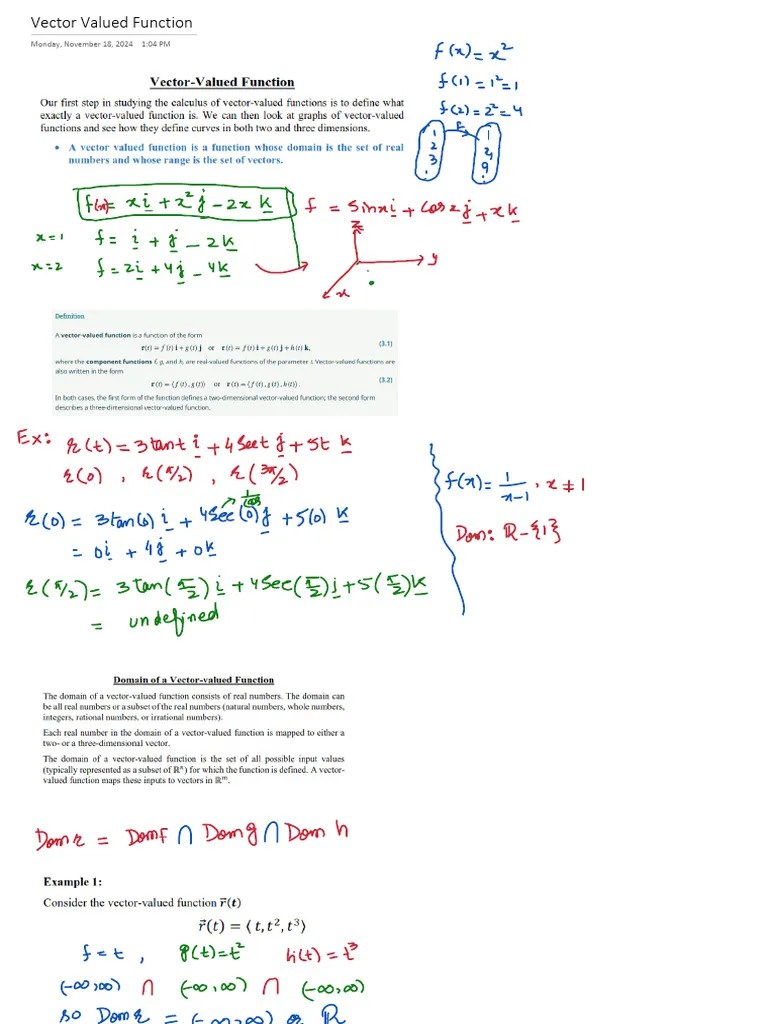 Vector Valued Function
Monday, November 18, 2024 1:04 PM
f(x) = x²
f(1) = 1² = 1
f(2) = 2² = 4
Vector-Valued Function
Our first step in studying the calculus of vector-valued functions is to define what
exactly a vector-valued function is. We can then look at graphs of vector-valued
functions and see how they define curves in both two and three dimensions.
• A vector valued function is a function whose domain is the set of real
numbers and whose range is the set of vectors.
f
1 1
2 4
3 9
. .
f(x) = xi + x²j - 2xk
f = sinxi + cosxj + xk
x=1 f = i + j - 2k
x=2 f = 2i + 4j - 4k
z
y
x
Definition
A vector-valued function is a function of the form
r(t) = f(t) i + g(t) j or r(t) = f(t) i + g(t) j + h(t) k, (3.1)
where the component functions f, g, and h, are real-valued functions of the parameter t. Vector-valued functions are
also written in the form
r(t) = ⟨f(t), g(t)⟩ or r(t) = ⟨f(t), g(t), h(t)⟩. (3.2)
In both cases, the first form of the function defines a two-dimensional vector-valued function; the second form
describes a three-dimensional vector-valued function.
Ex: r(t) = 3tant i + 4sect j + 5t k
r(0), r(π/2), r(3π/2)
r(0) = 3tan(0) i + 4sec(0) j + 5(0) k
1/cos
= 0i + 4j + 0k
r(π/2) = 3tan(π/2) i + 4sec(π/2) j + 5(π/2) k
= undefined
f(x) = 1/(x-1), x ≠ 1
Dom: R - {1}
Domain of a Vector-valued Function
The domain of a vector-valued function consists of real numbers. The domain can
be all real numbers or a subset of the real numbers (natural numbers, whole numbers,
integers, rational numbers, or irrational numbers).
Each real number in the domain of a vector-valued function is mapped to either a
two- or a three-dimensional vector.
The domain of a vector-valued function is the set of all possible input values
(typically represented as a subset of ℝⁿ) for which the function is defined. A vector-
valued function maps these inputs to vectors in ℝᵐ.
Dom r = Dom f ∩ Dom g ∩ Dom h
Example 1:
Consider the vector-valued function r⃗(t)
r⃗(t) = ⟨ t, t², t³⟩
f = t , g(t) = t² h(t) = t³
(-∞,∞) ∩ (-∞,∞) ∩ (-∞,∞)
so Dom r = (-∞,∞) or R